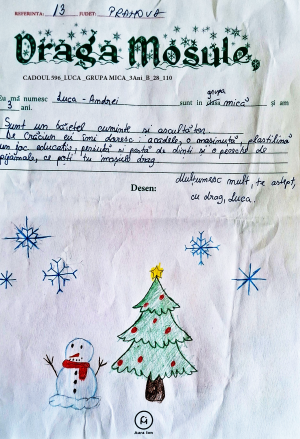 REFERINTA: 13 JUDET: PRAHOVA
Dragă Moșule,
CADOUL 596_LUCA _GRUPA MICA_3Ani_B_28_110
grupa
Eu mă numesc Luca - Andrei sunt în clasa mică și am
3 ani.
Sunt un băiețel cuminte și ascultător.
De Crăciun eu îmi doresc: acadele, o mașinuță, plastilină
un joc educativ, periuță și pastă de dinți și o pereche de
pijamale, ce poți tu moșule drag.
Desen:
Mulțumesc mult, te aștept,
cu drag, Luca.
Aura Ion